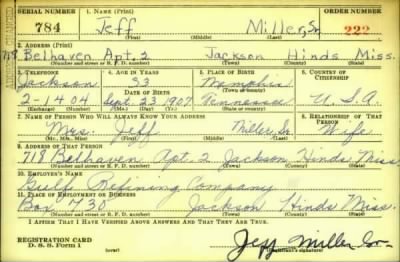 SERIAL NUMBER 1. NAME (Print) ORDER NUMBER
784 Jeff Miller, Sr. 222
2. ADDRESS (Print)
718 Belhaven Apt. 2 Jackson Hinds Miss.
(Number and street or R. F. D. number) (Town) (County) (State)
3. TELEPHONE 4. AGE IN YEARS 5. PLACE OF BIRTH 6. COUNTRY OF CITIZENSHIP
Jackson 33 Memphis
DATE OF BIRTH (Town or county)
2-1404 Sept. 23 1907 Tennessee U.S.A.
(Exchange) (Number) (Mo.) (Day) (Yr.) (State or country)
7. NAME OF PERSON WHO WILL ALWAYS KNOW YOUR ADDRESS 8. RELATIONSHIP OF THAT PERSON
Mrs. Jeff Miller Sr. Wife
(Mr., Mrs., Miss) (First) (Middle) (Last)
9. ADDRESS OF THAT PERSON
718 Belhaven Apt. 2 Jackson Hinds Miss.
(Number and street or R. F. D. number) (Town) (County) (State)
10. EMPLOYER'S NAME
Gulf Refining Company
11. PLACE OF EMPLOYMENT OR BUSINESS
Box 730 Jackson Hinds Miss.
(Number and street or R. F. D. number) (Town) (County) (State)
I AFFIRM THAT I HAVE VERIFIED ABOVE ANSWERS AND THAT THEY ARE TRUE.
REGISTRATION CARD
D. S. S. Form 1 Jeff Miller Sr.
(Registrant's signature)